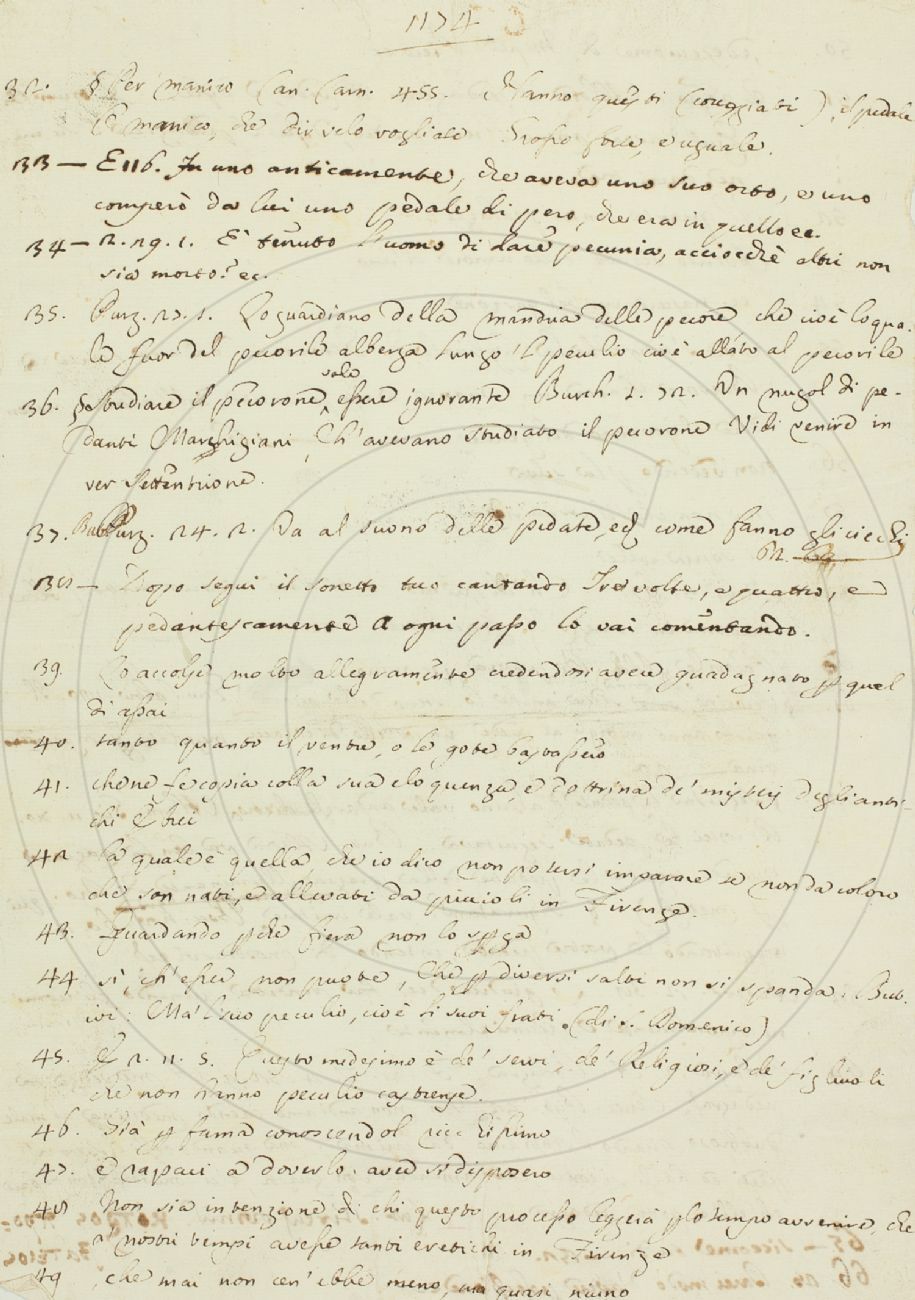 1174
32. § Per manico Can. Carn. 455. Hanno questi (coreggiati) il pedale
O manico, che dir velo vogliate Grosso forte, e uguale.
33 — E 116. Fu uno anticamente, che aveva uno suo orto, e uno
comperò da lui uno pedale di pero, che era in quello ec.
34 — 2. 29. 1. E' tenuto l'uomo di dare pecunia, acciocchè altri non
sia morto? ec.
35. Purg. 27. 1. Lo guardiano della mandria delle pecore che cioè lo qua-
le fuor del pecorile alberga Lungo 'l peculio cioè allato al pecorile
36. § Studiare il pecorone vale essere ignorante Burch. 1. 72. Un nugol di pe-
danti Marchigiani, Ch' avevano studiato il pecorone Vidi venire in
ver Settentrione.
37. But. Purg. 24. 2. Va al suono delle pedate, ec come fanno gli ciechi
38 — Dopo segui il sonetto tuo cantando Tre volte, e quattro, e
pedantescamente A ogni passo lo vai comentando.
39. Lo accolse molto allegramente credendosi avere guadagnato p quel
di assai
40. tanto quanto il ventre, o le gote bastassero
41. che ne fe copia colla sua eloquenza, e dottrina de' misterj degli anti-
chi Ebrei
42 la quale è quella, che io dico non potersi imparare se non da coloro
che son nati, e allevati da piccioli in Firenze.
43. Guardando pche fiera non lo
44 sì, ch' esser non puote, Che p diversi salti non si spanda. But.
ivi: Ma 'l suo peculio, cioè li suoi frati (di S. Domenico)
45. E 2. 11. 5. Questo medesimo è de' servi, de' Religiosi, e de' figliuoli
che non hanno peculio castrense.
46. Già p fama conoscendol ricchissimo
47. e rapaci a doverlo avere si disposero
48 Non sia intenzione di chi questo processo leggerà p lo tempo avvenire, che
a' nostri tempi avesse tanti eretichi in Firenze
49 che mai non cen' ebbe meno, ma quasi niuno